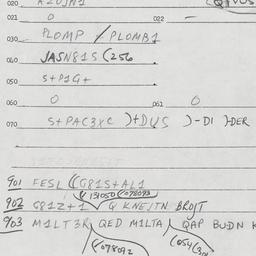 020
021 0 022 —
030 PLOMP / PLOMB1
040 JASN81S (256
050 S+P1G+
060 0 061 0
070 S+PAC3XC )+DUS )-DI )-DER
901 FESL ((G81S+AL1
(131050 (078093
902 G81Z+1 Q KNEJTN BROJT
903 M1LT3R QED M1LTA QAP BUDN K
(078092 (054(301